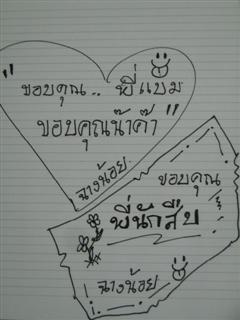 "ขอบคุณ.. พี่แบม
ขอบคุณน้าค้า"
ฉางน้อย.
ขอบคุณ
พี่นักสืบ
ฉางน้อย